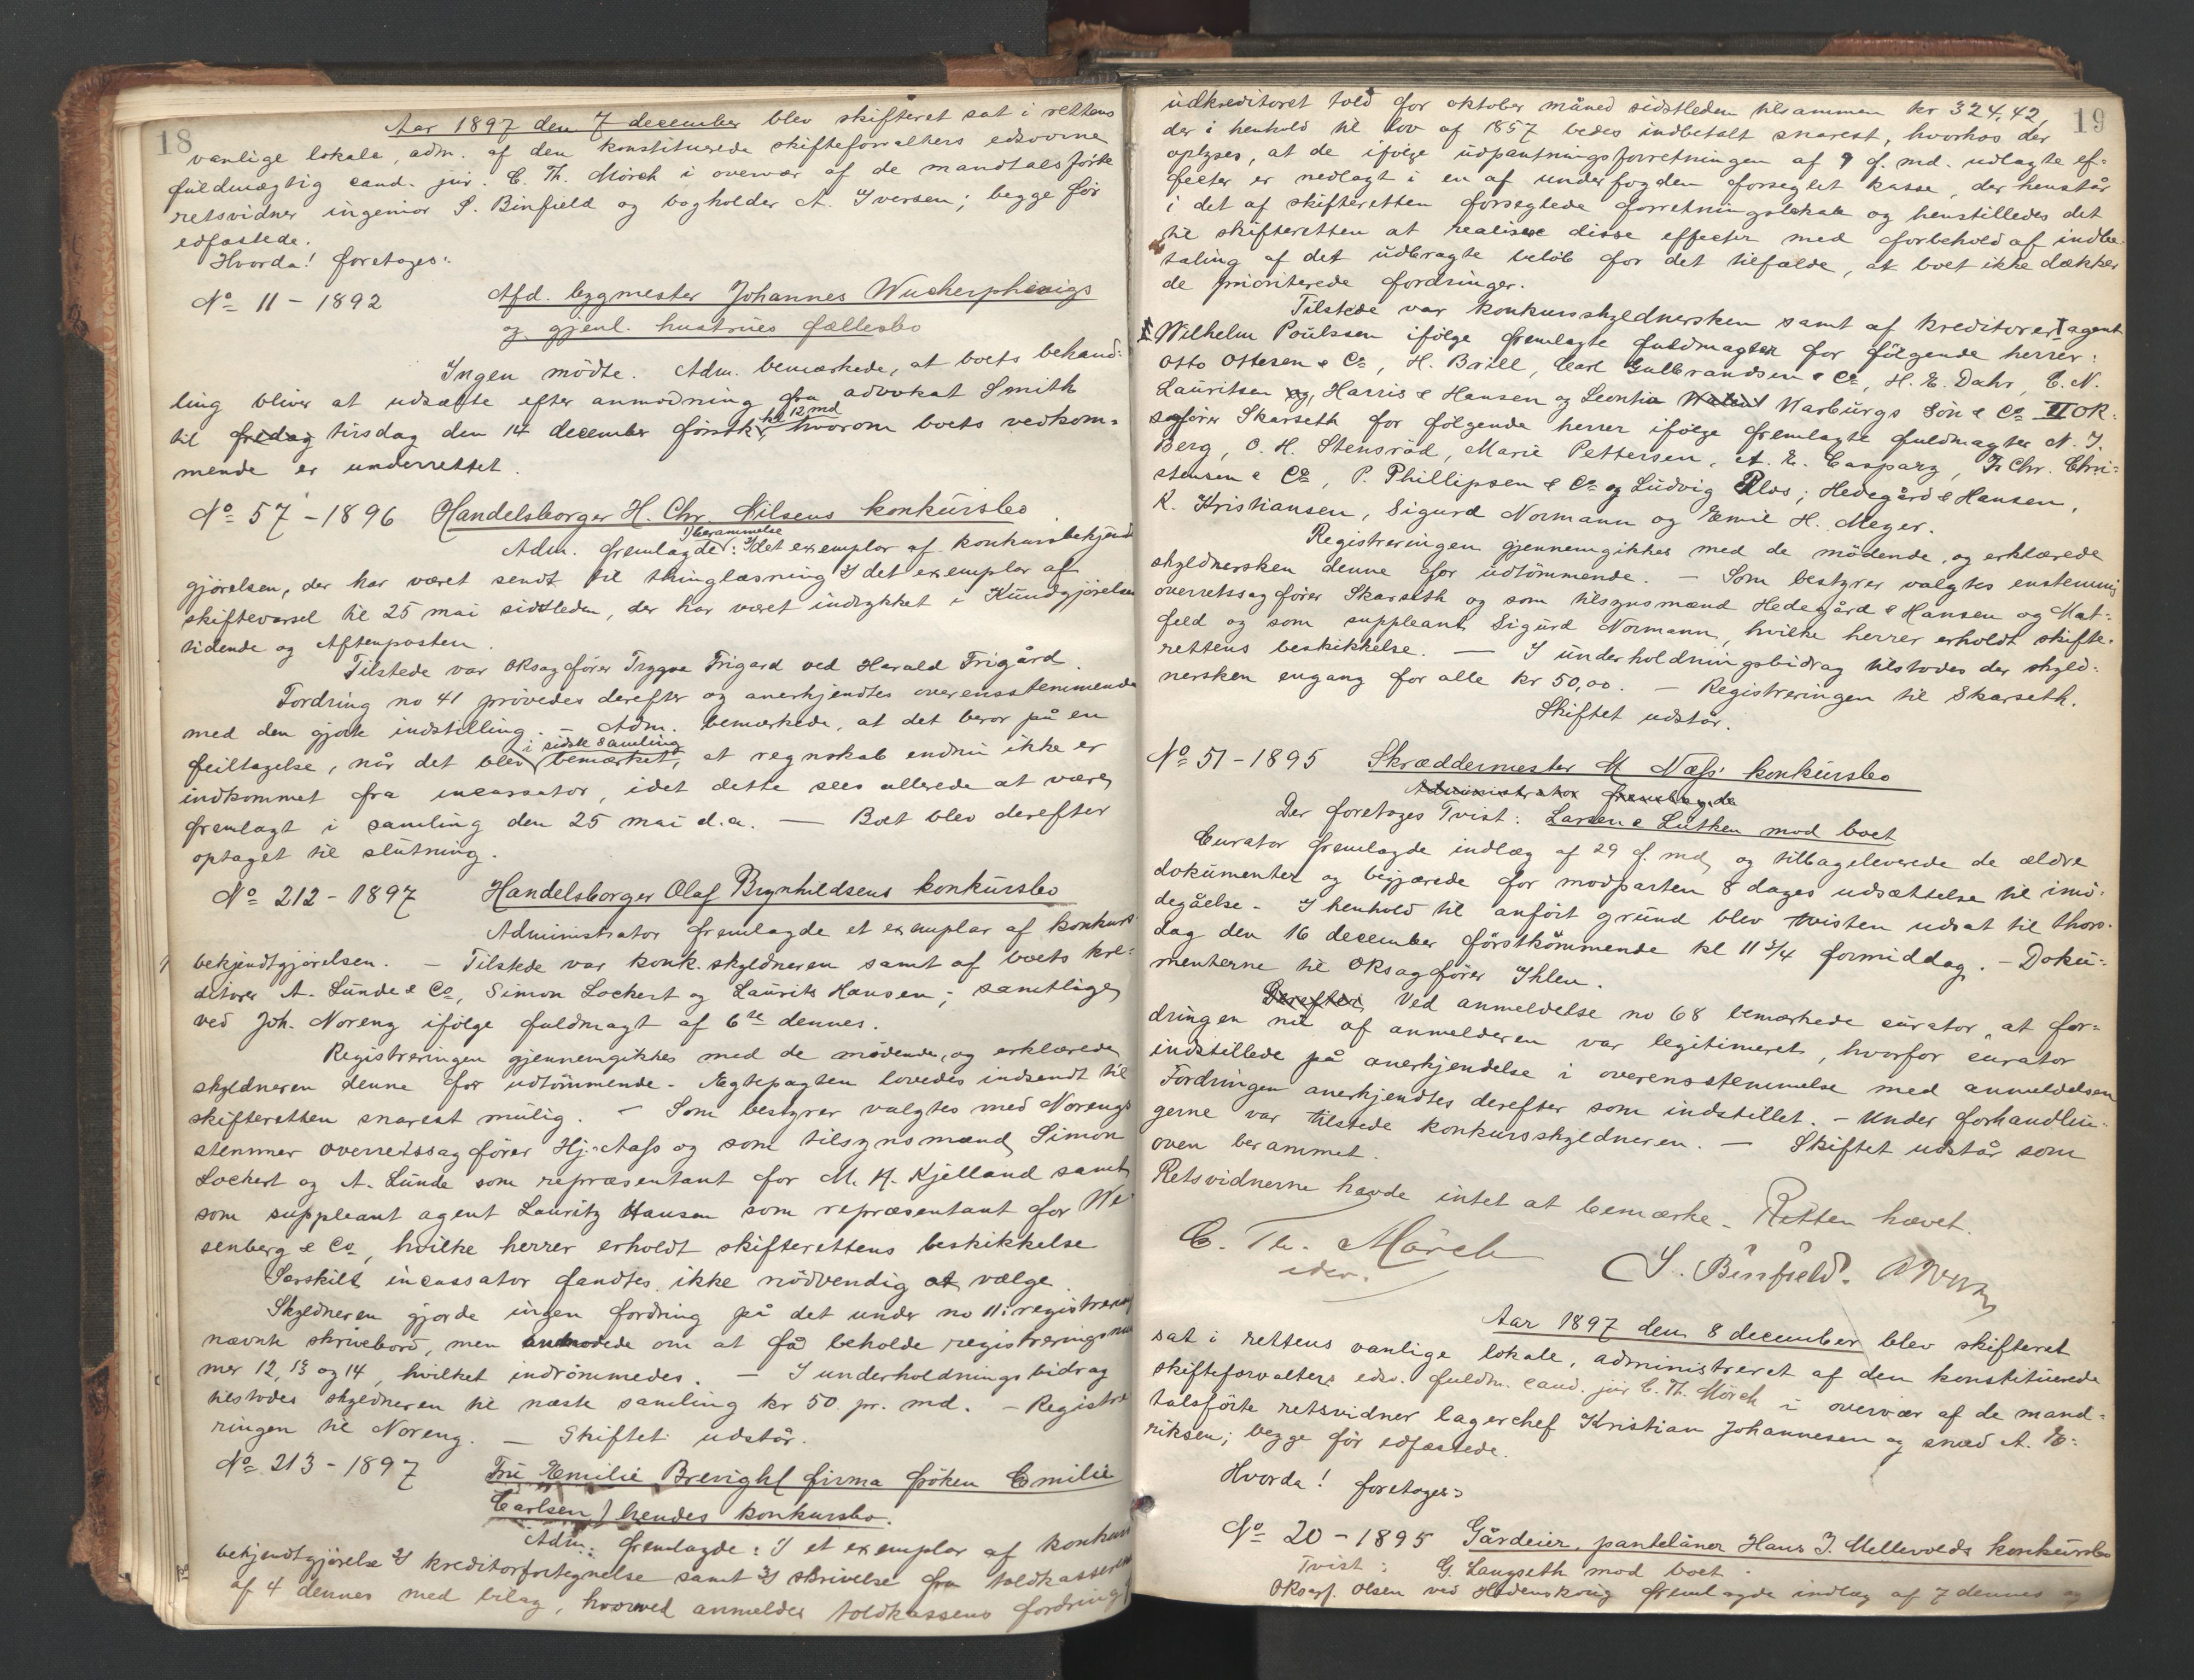 18
Aar 1897 den 7 december blev skifteret sat i rettens
vanlige lokale, adm. af den konstituerede skifteforvalters edsvorne
fuldmægtig cand. jur. C. Th. Mörch i overvær af de mandtalsförte
retsvidner ingeniör S. Binfield og bogholder A. Iversen; begge för
edfæstede.
Hvorda! foretages:
No 11 - 1892 Afd. bygmester Johannes Wucherphenigs
og gjenl. hustrues fællesbo
Ingen mödte. Adm. bemærkede, at boets behand-
ling bliver at udsætte efter anmodning fra advokat Smith
til fredag tirsdag den 14 december förstk. kl 12 md hvorom boets vedkom-
mende er underrettet.
No 57 - 1896 Handelsborger H. Chr. Nilsens konkursbo
Adm. fremlagde: 1) berammelse det exemplar af konkursbekjendt
gjörelsen, der har været sendt til thinglæsning 2) det exemplar af
skiftevarsel til 25 mai sidstleden, der har været indrykket i Kundgjörelses
tidende og Aftenposten.
Tilstede var Oksagförer Trygve Frigard ved Harald Frigård.
Fordring no 41 prövedes derefter og anerkjendtes overensstemmende
med den gjorte indstilling. - Adm. bemærkede, at det beror på en
feiltagelse, når det blev i sidste samling bemærket, at regnskab endnu ikke er
indkommet fra incassator, idet dette sees allerede at være
fremlagt i samling den 25 mai d.a. — Boet blev derefter
optaget til slutning.
No 212 - 1897 Handelsborger Olaf Brynhildsens konkursbo
Administrator fremlagde et exemplar af konkurs
bekjendtgjörelsen. - Tilstede var konk. skyldneren samt af boets kre-
ditorer A. Lunde & Co, Simon Lockert og Laurits Hansen; samtlige
ved Joh. Noreng ifölge fuldmagt af 6te dennes.
Registreringen gjennemgikkes med de mödende, og erklærede
skyldneren denne for udtömmende. - Ægtepagten lovedes indsendt til
skifteretten snarest mulig. - Som bestyrer valgtes med Norengs
stemmer overretssagförer Hj. Aass og som tilsynsmænd Simon
Lockert og A. Lunde som repræsentant for M. H. Kjelland samt
som suppleant agent Lauritz Hansen som repræsentant for We
senberg & Co, hvilke herrer erholdt skifterettens beskikkelse
Særskilt incassator fandtes ikke nödvendig at vælge.
Skyldneren gjorde ingen fordring på det under no 11 i registreringen
nævnte skrivebord, men anmodede om at få beholde registreringsnum
mer 12, 13 og 14, hvilket indrömmedes. — I underholdningsbidrag
tilstodes skyldneren til næste samling kr 50 pr. md. - Registre
ringen til Noreng. — Skiftet udstår.
No 213 - 1897 Fru Emilie Brevigh (firma fröken Emilie
Carlsen) hendes konkursbo.
Adm. fremlagde: 1) et exemplar af konkurs
bekjendtgjörelse 2) kreditorfortegnelse samt 3) skrivelse fra toldkasseren
af 4 dennes med bilag, hvorved anmeldes toldkassens fordring
19
udkreditoret told for oktober måned sidstleden tilsammen kr 324,42,
der i henhold til lov af 1857 bedes indbetalt snarest, hvorhos der
oplyses, at de ifölge udpantningsforretningen af 9 f. md. udlagte ef-
fecter er nedlagt i en af underfogden forseglet kasse, der henstår
i det af skifteretten forseglede forretningslokale og henstilledes det
til skifteretten at realisere disse effecter med forbehold af indbe-
taling af det udbragte belöb for det tilfælde, at boet ikke dækker
de prioriterede fordringer.
Tilstede var konkursskyldnersken samt af kreditorer I agent
Wilhelm Poulssen ifölge fremlagte fuldmagter for fölgende herrer:
Otto Ottesen & Co, H. Brill, Carl Gulbrandsen & Co, H. E. Dahr, C. N.
Lauritsen og, Harris & Hansen og Leontin Warburgs Sön & Co II OR-
sagförer Skarseth for fölgende herrer ifölge fremlagte fuldmagter N. J.
Berg, O. H. Stensröd, Marie Pettersen, A. E. Caspary, Fr Chr. Chri-
stensen & Co, P. Phillipsen & Co og Ludvig Plos; Hedegård & Hansen,
K. Kristiansen, Sigurd Normann og Emil H. Meyer.
Registreringen gjennemgikkes med de mödende, og erklærede
skyldnersken denne for udtömmende. - Som bestyrer valgtes enstemmig
overretssagförer Skarseth og som tilsynsmænd Hedegård & Hansen og Mat-
feld og som suppleant Sigurd Normann, hvilke herrer erholdt skifte-
rettens beskikkelse. — I underholdningsbidrag tilstodes der skyld-
nersken engang for alle kr 50,00. - Registreringen til Skarseth.
Skiftet udstår.
No 51 - 1895 Skræddermester M Næss' konkursbo
Administrator fremlagde
Der foretoges Tvist: Larsen & Lütken mod boet
Curator fremlagde indlæg af 29 f. md, og tilbageleverede de ældre
dokumenter og begjærede for modparten 8 dages udsættelse til imö-
degåelse. - I henhold til anfört grund blev tvisten udsat til thors-
dag den 16 december förstkommende kl 11 3/4 formiddag. - Doku-
menterne til Oksagförer Ihlen.
Derefter Ved anmeldelse no 68 bemærkede curator, at for-
dringen nu af anmelderen var legitimeret, hvorfor curator
indstillede på anerkjendelse i overensstemmelse med anmeldelsen
Fordringen anerkjendtes derefter som indstillet. - Under forhandlin-
gerne var tilstede konkursskyldneren. — Skiftet udstår som
oven berammet.
Retsvidnerne havde intet at bemærke. Retten hævet.
C. Th. Mörch
edsv.
S. Binfield. A Iversen
Aar 1897 den 8 december blev skifteret
sat i rettens vanlige lokale, administreret af den konstituerede
skifteforvalters edsv. fuldm. cand. jur C. Th. Mörch i overvær af de mand-
talsförte retsvidner lagerchef Kristian Johannesen og snedk A. E-
riksen; begge för edfæstede.
Hvorda! foretages:
No 20 - 1895 Gårdeier, pantelåner Hans J. Mellevolds konkursbo
Tvist: G. Langseth mod boet.
Oksagf. Olsen ved Hedenskoug fremlagde indlæg af 7 dennes og